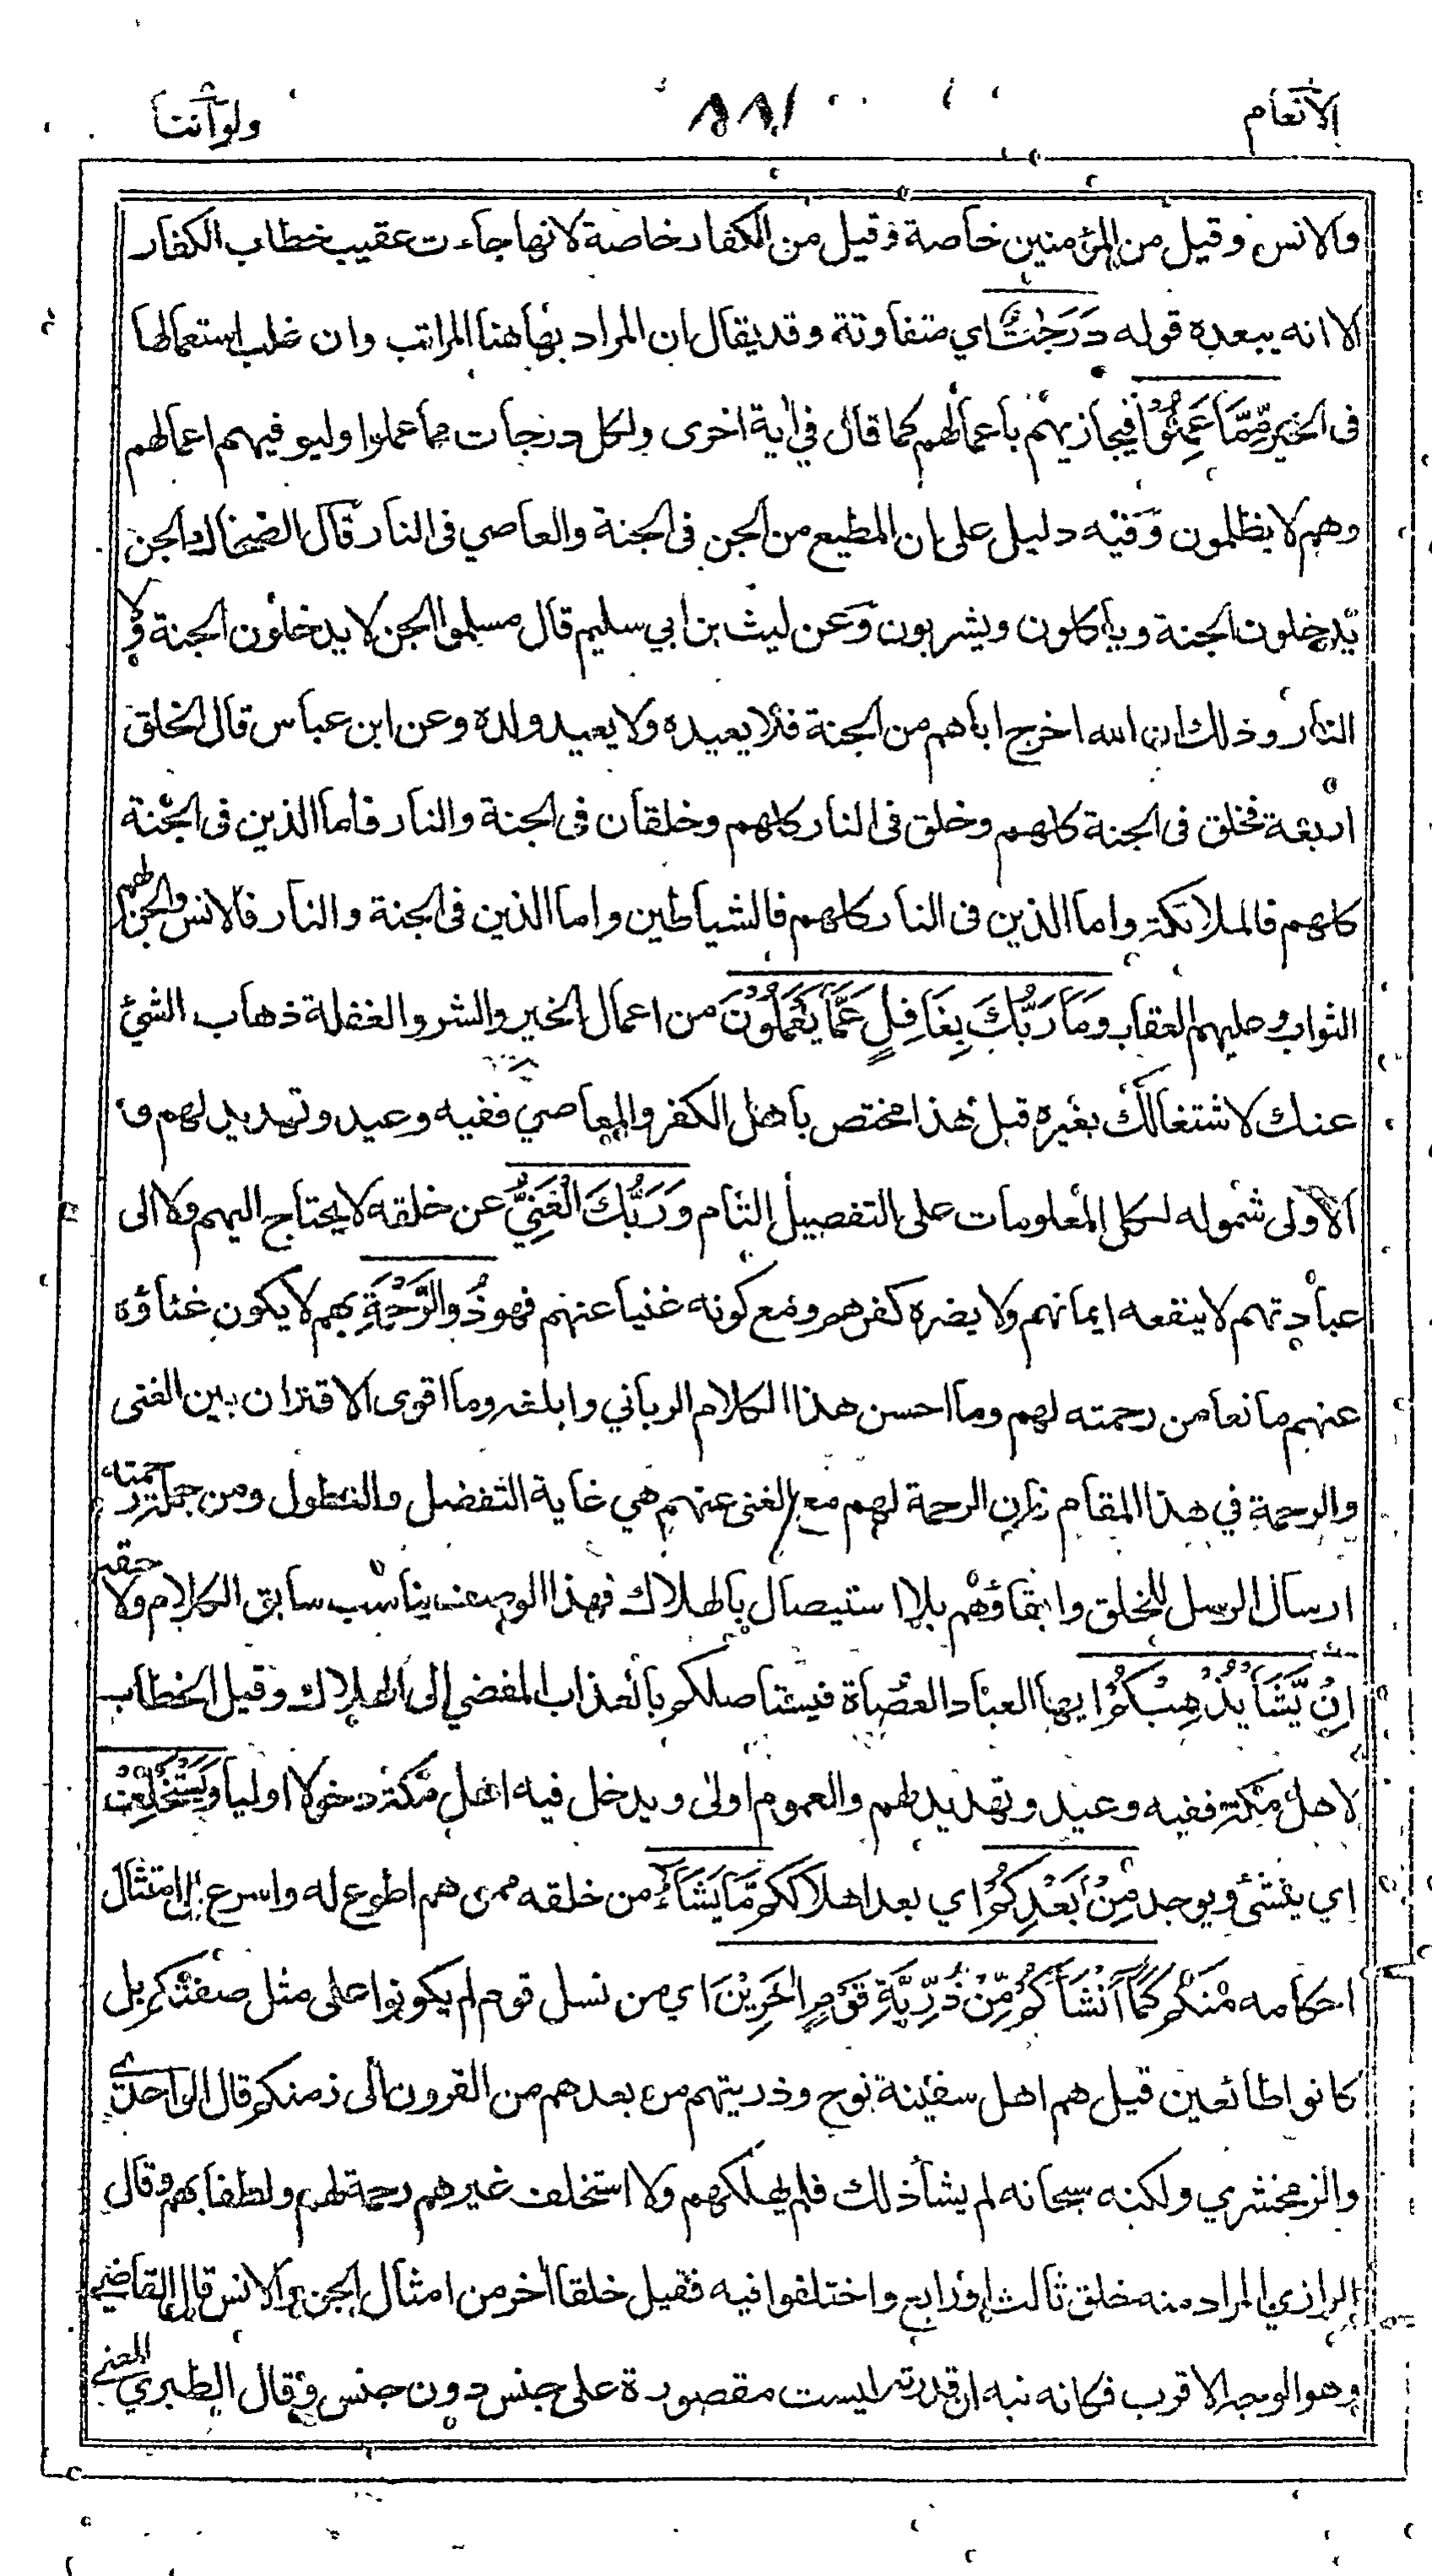 الانعام
ولو اننا
والانس وقيل من المؤمنين خاصة وقيل من الكفار خاصة لانها جاءت عقيب خطاب الكفار
الا انه يبعده قوله دَرَجٰتٌ اي متفاوتة وقد يقال ان المراد بها هنا المراتب وان غلب استعمالها
فى الخير مِّمَّا عَمِلُوْا فيجازيهم باعمالهم كما قال في اية اخرى ولكل درجات مما عملوا وليوفيهم اعمالهم
وهم لا يظلمون وفيه دليل على ان المطيع من الجن فى الجنة والعاصي فى النار قال الضحاك والجن
يدخلون الجنة وياكلون ويشربون وعن ليث بن ابي سليم قال مسلموا الجن لا يدخلون الجنة ولا
النار وذلك ان الله اخرج اباهم من الجنة فلا يعيده ولا يعيد ولده وعن ابن عباس قال الخلق
اربعة فخلق فى الجنة كلهم وخلق فى النار كلهم وخلقان فى الجنة والنار فاما الذين فى الجنة
كلهم فالملائكة واما الذين فى النار كلهم فالشياطين واما الذين فى الجنة والنار فالانس والجن لهم
الثواب وعليهم العقاب وَمَا رَبُّكَ بِغَافِلٍ عَمَّا يَعْمَلُوْنَ من اعمال الخير والشر والغفلة ذهاب الشئ
عنك لاشتغالك بغيره قيل هذا مختص باهل الكفر والمعاصي ففيه وعيد وتهديد لهم و
الاولى شموله لكل المعلومات على التفصيل التام وَرَبُّكَ الْغَنِيُّ عن خلقه لا يحتاج اليهم ولا الى
عبادتهم لا ينفعه ايمانهم ولا يضره كفرهم ومع كونه غنيا عنهم فهو ذُو الرَّحْمَةِ بهم لا يكون غناؤه
عنهم مانعا من رحمته لهم وما احسن هذا الكلام الرباني وابلغه وما اقوى الاقتران بين الغنى
والرحمة في هذا المقام فان الرحمة لهم مع الغنى عنهم هي غاية التفضل والتطول ومن جملة رحمته
ارسال الرسل للخلق وابقاؤهم بلا استيصال بالهلاك فهذا الوصف يناسب سابق الكلام ولاحقه
اِنْ يَّشَأْ يُذْهِبْكُمْ ايها العباد العصاة فيستاصلكم بالعذاب المفضي الى الهلاك وقيل الخطاب
لاهل مكة ففيه وعيد وتهديد لهم والعموم اولى ويدخل فيه اهل مكة دخولا اوليا وَيَسْتَخْلِفْ
اي ينشئ ويوجد مِنْۢ بَعْدِكُمْ اي بعد اهلاككم مَّا يَشَآءُ من خلقه ممن هم اطوع له واسرع الى امتثال
احكامه منكم كَمَآ اَنْشَاَكُمْ مِّنْ ذُرِّيَّةِ قَوْمٍ اٰخَرِيْنَ اي من نسل قوم لم يكونوا على مثل صفتكم بل
كانوا طائعين قيل هم اهل سفينة نوح وذريتهم من بعدهم من القرون الى زمنكم قال الواحدي
والزمخشري ولكنه سبحانه لم يشأ ذلك فلم يهلكهم ولا استخلف غيرهم رحمة لهم ولطفا بهم وقال
الرازي المراد منه خلق ثالث او رابع واختلفوا فيه فقيل خلقا اخر من امثال الجن والانس قال القاضي
وهو الوجه الاقرب فكانه نبه ان قدرته ليست مقصورة على جنس دون جنس وقال الطبري المعنى